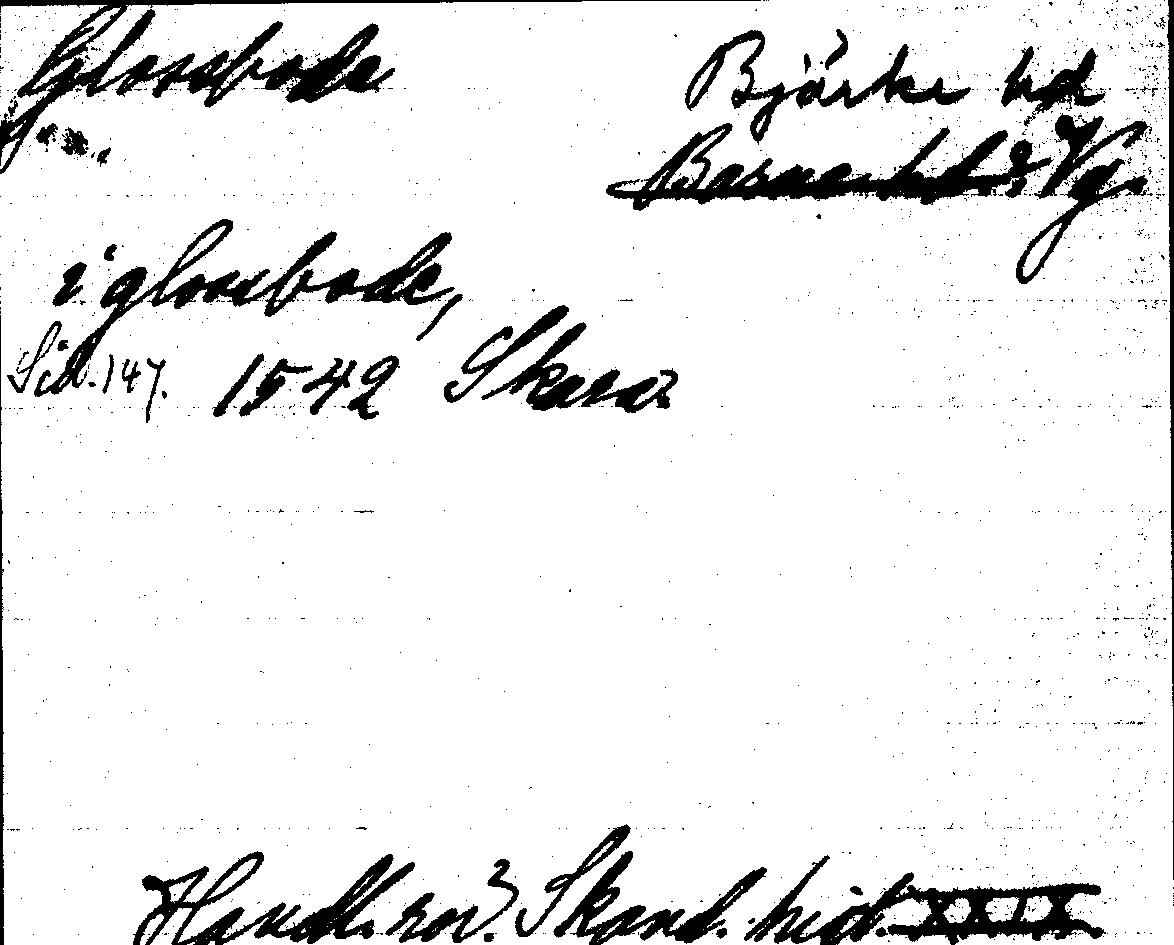 Glossbode
Bjärke hd
Barne hd: Vg.
i glossbode,
Sid. 147. 1542 Skara
Handl. rör. Skand. hist. XXIX